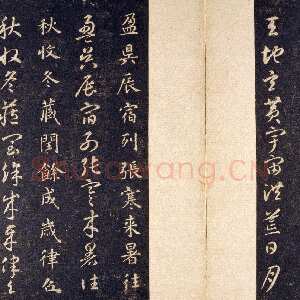 天地玄黃宇宙洪荒日月
盈昃辰宿列張寒來暑往
盈昃辰宿列張寒來暑往
秋收冬藏閏餘成歲律呂
秋收冬藏閏餘成歲律呂